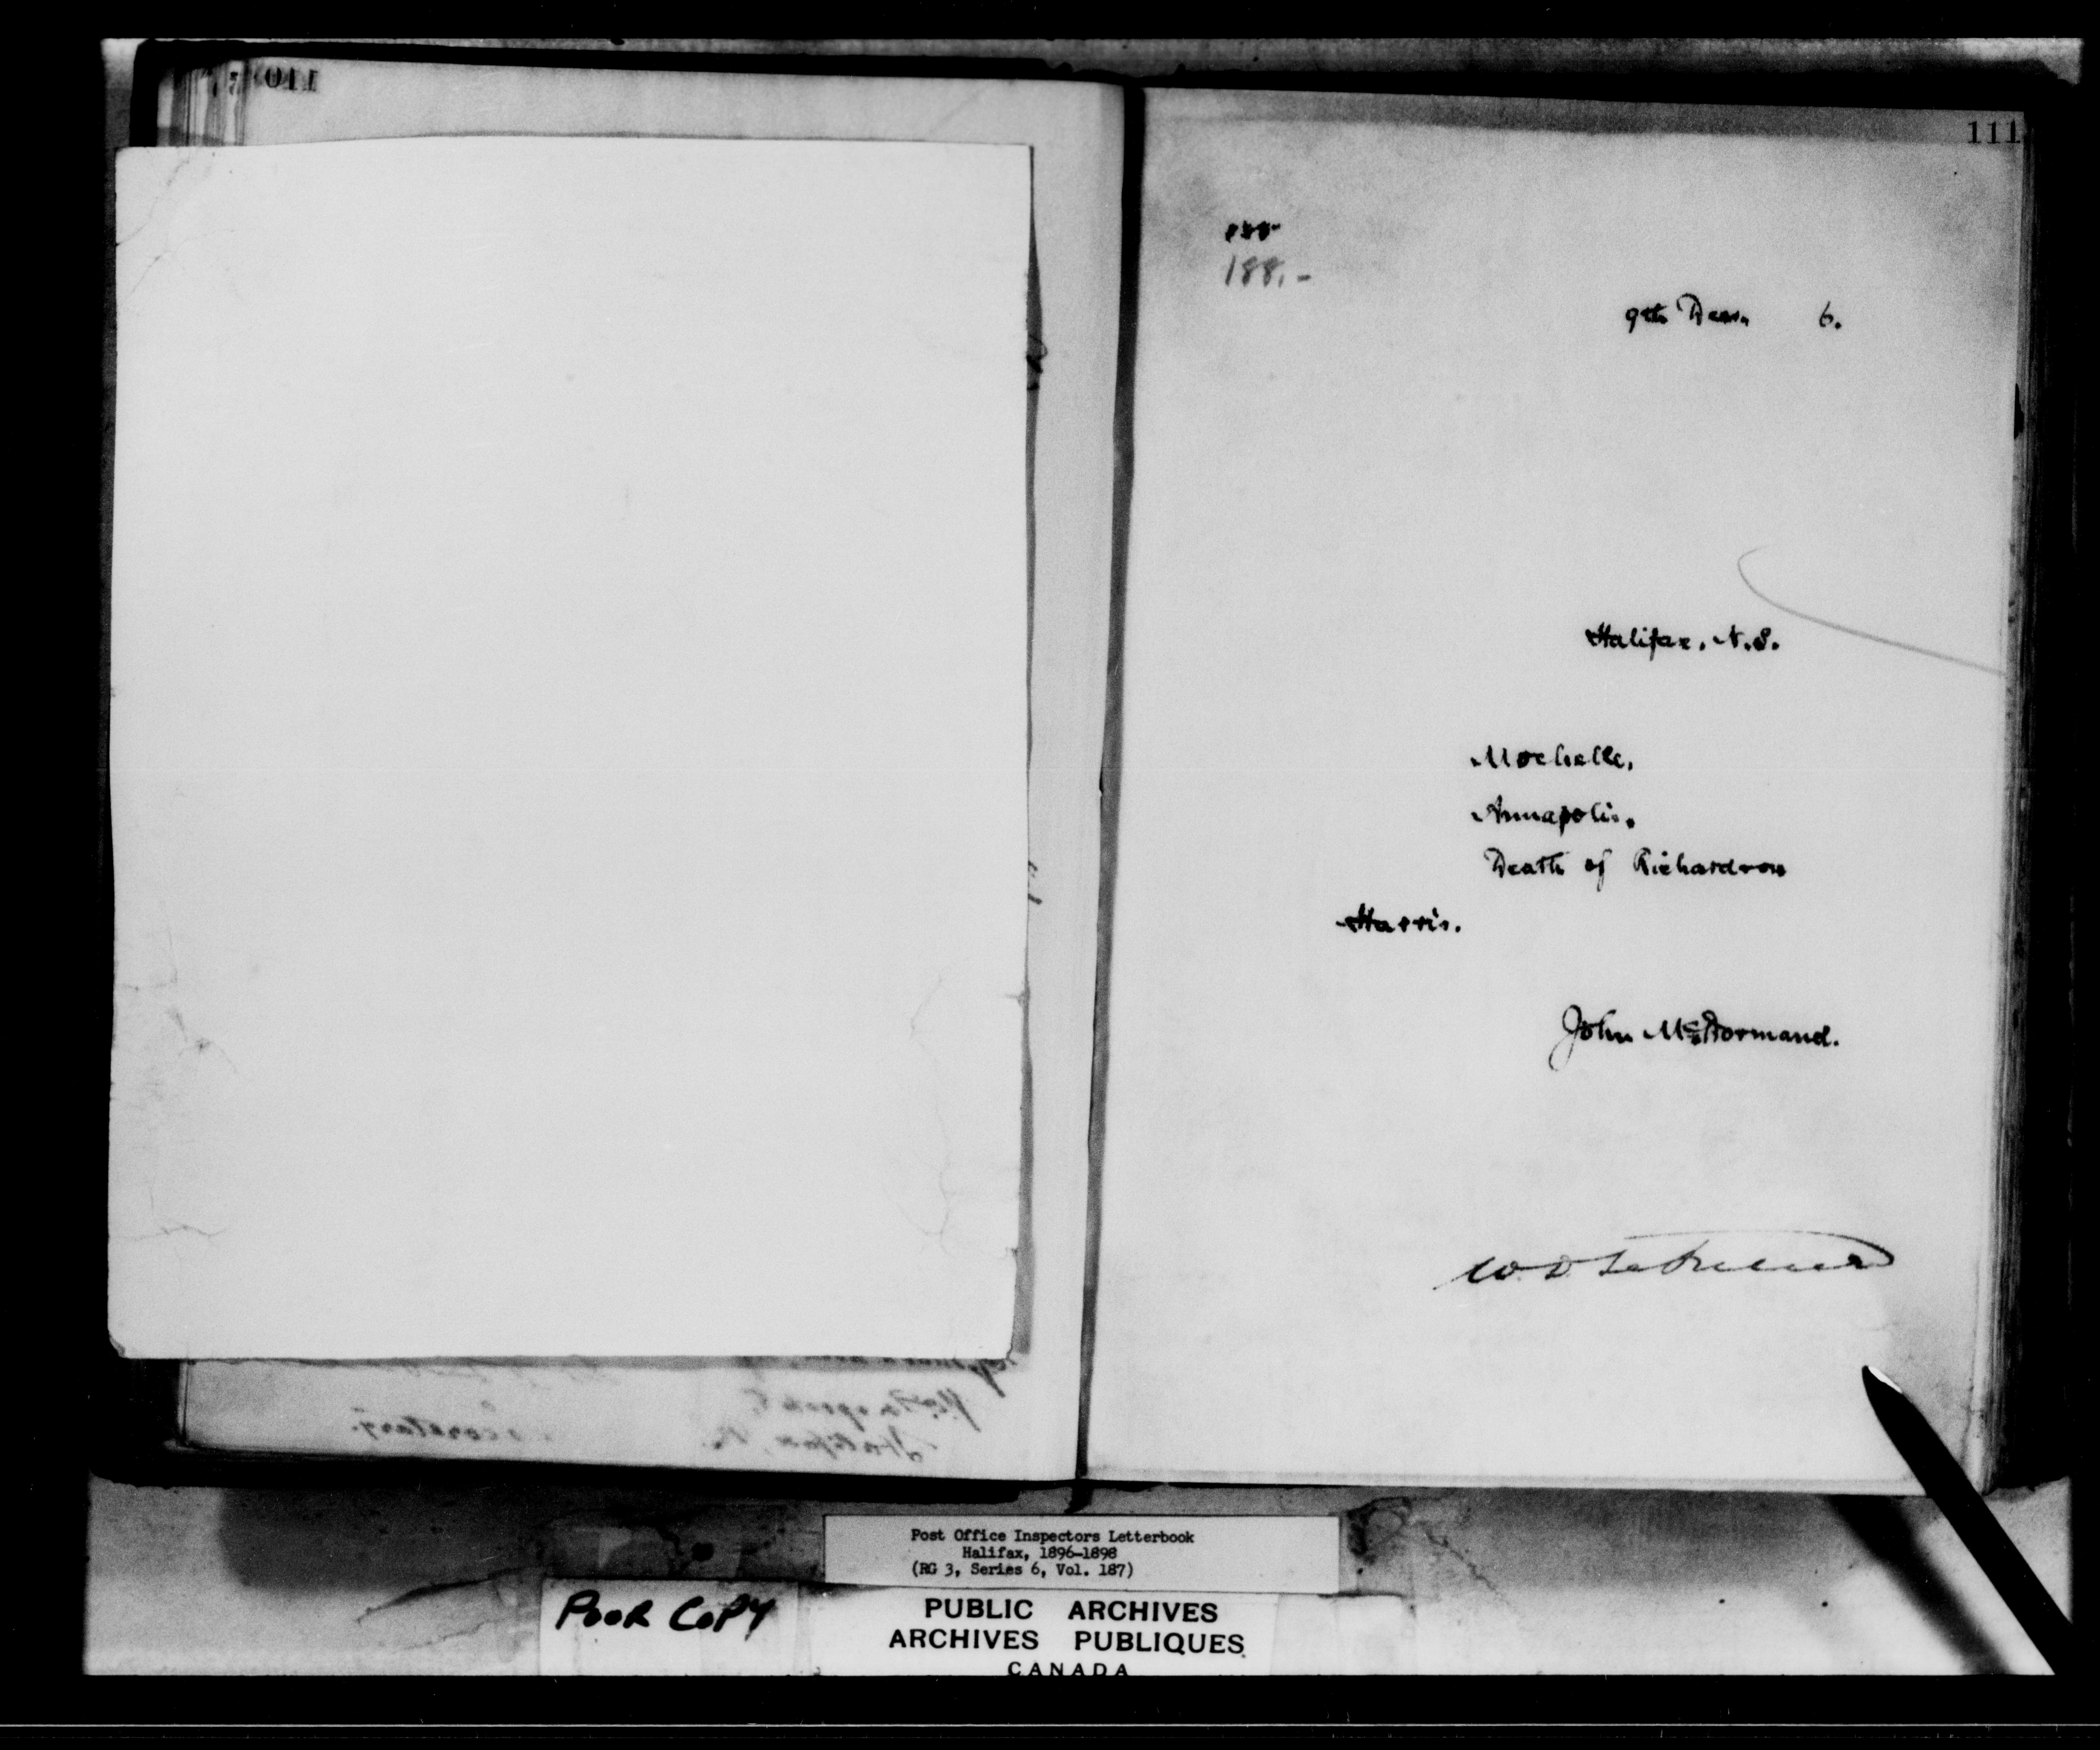 110
111
188
188.-
9th Decr. 6.
Halifax, N.S.
Mochelle,
Annapolis.
Death of Richardson
Harris.
John McDormand.
Secretary.
Halifax, N.
Post Office Inspectors Letterbook
Halifax, 1896-1898
(RG 3, Series 6, Vol. 187)
POOR COPY
PUBLIC ARCHIVES
ARCHIVES PUBLIQUES
CANADA